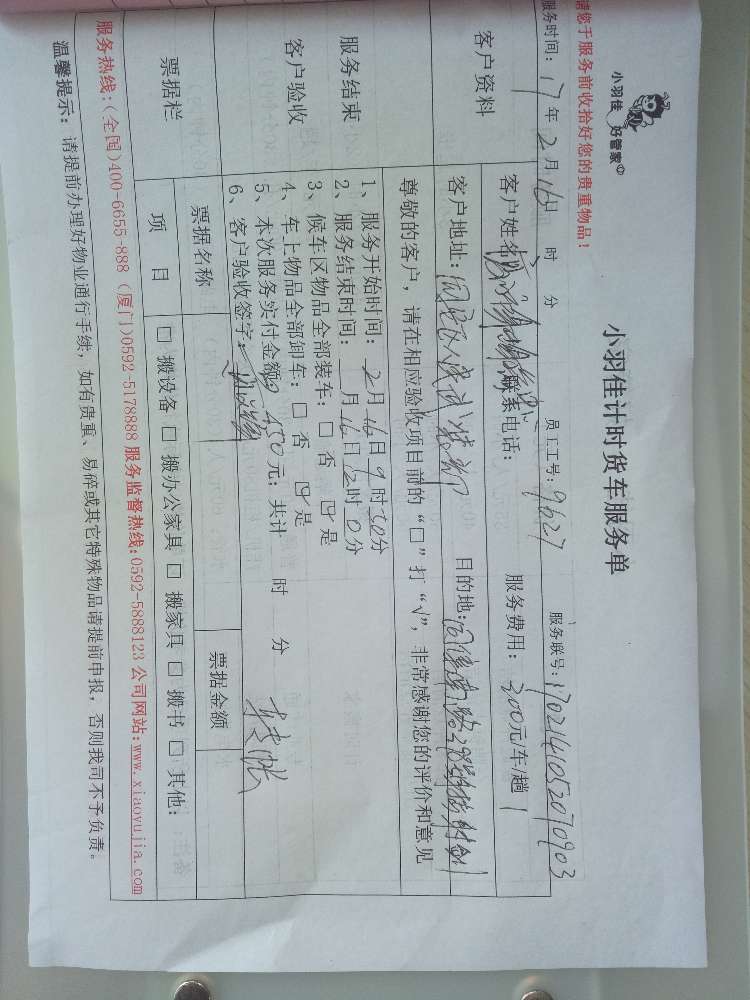 小羽佳 好管家
小羽佳计时货车服务单
请您于服务前收拾好您的贵重物品！
员工工号：9627
服务联号：1702141052070903
服务时间：17年2月16日 时 分
客户资料
客户姓名
联系电话：
服务费用：300元/车/趟
客户地址：
目的地：
服务结束
客户验收
尊敬的客户，请在相应验收项目前的“□”打“√”，非常感谢您的评价和意见
1、服务开始时间：2月16日9时30分
2、服务结束时间： 月16日12时0分
3、候车区物品全部装车：□ 否 ☑ 是
4、车上物品全部卸车：□ 否 ☑ 是
5、本次服务实付金额 450元；共计 时 分
6、客户验收签字：
票据栏
票据名称
票据金额
项 目
□ 搬设备 □ 搬办公家具 □ 搬家具 □ 搬书 □ 其他：
服务热线：(全国)400-6655-888 (厦门)0592-5178888 服务监督热线：0592-5888123 公司网站：www.xiaoyujia.com
温馨提示：请提前办理好物业通行手续，如有贵重、易碎或其它特殊物品请提前申报，否则我司不予负责。